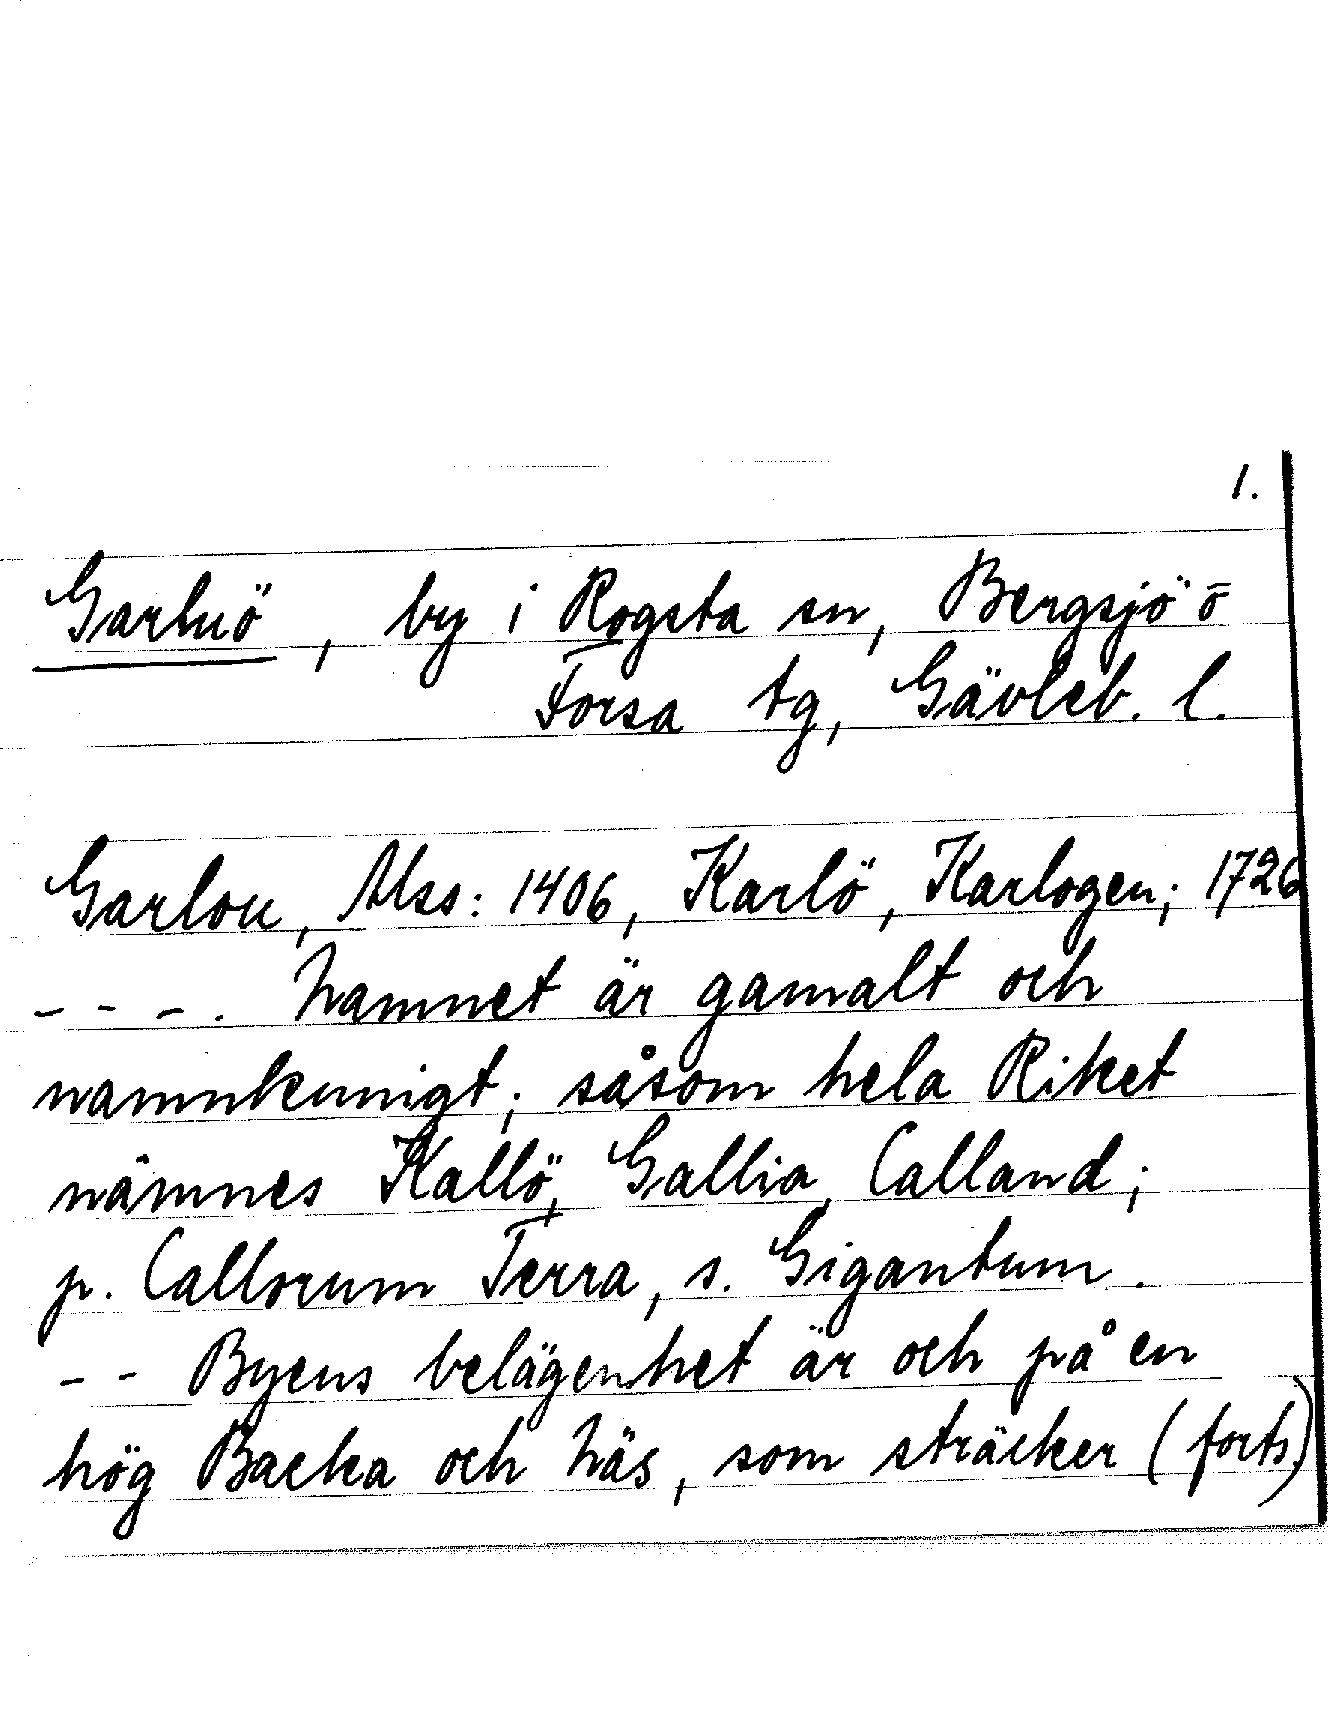 1.
Garluö, by i Rogsta sn, Bergsjö o
Forsa tg, Gävleb. l.
Garlou, Mss: 1406, Karlö, Karlogen; 1726
- - - . Namnet är gamalt och
namnkunnigt; såsom hela Riket
nämnes Kallö, Gallia, Calland;
p. Callorum Terra, s. Gigantum.
- - Byens belägenhet är och på en
hög Backa och Näs, som sträcker (forts.)